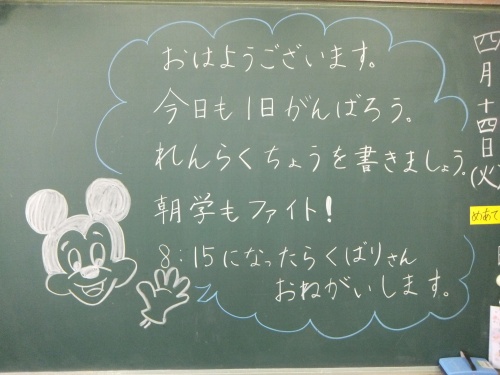 四月十四日(火)
めあて
おはようございます。
今日も1日がんばろう。
れんらくちょうを書きましょう。
朝学もファイト!
8:15になったらくばりさん
おねがいします。